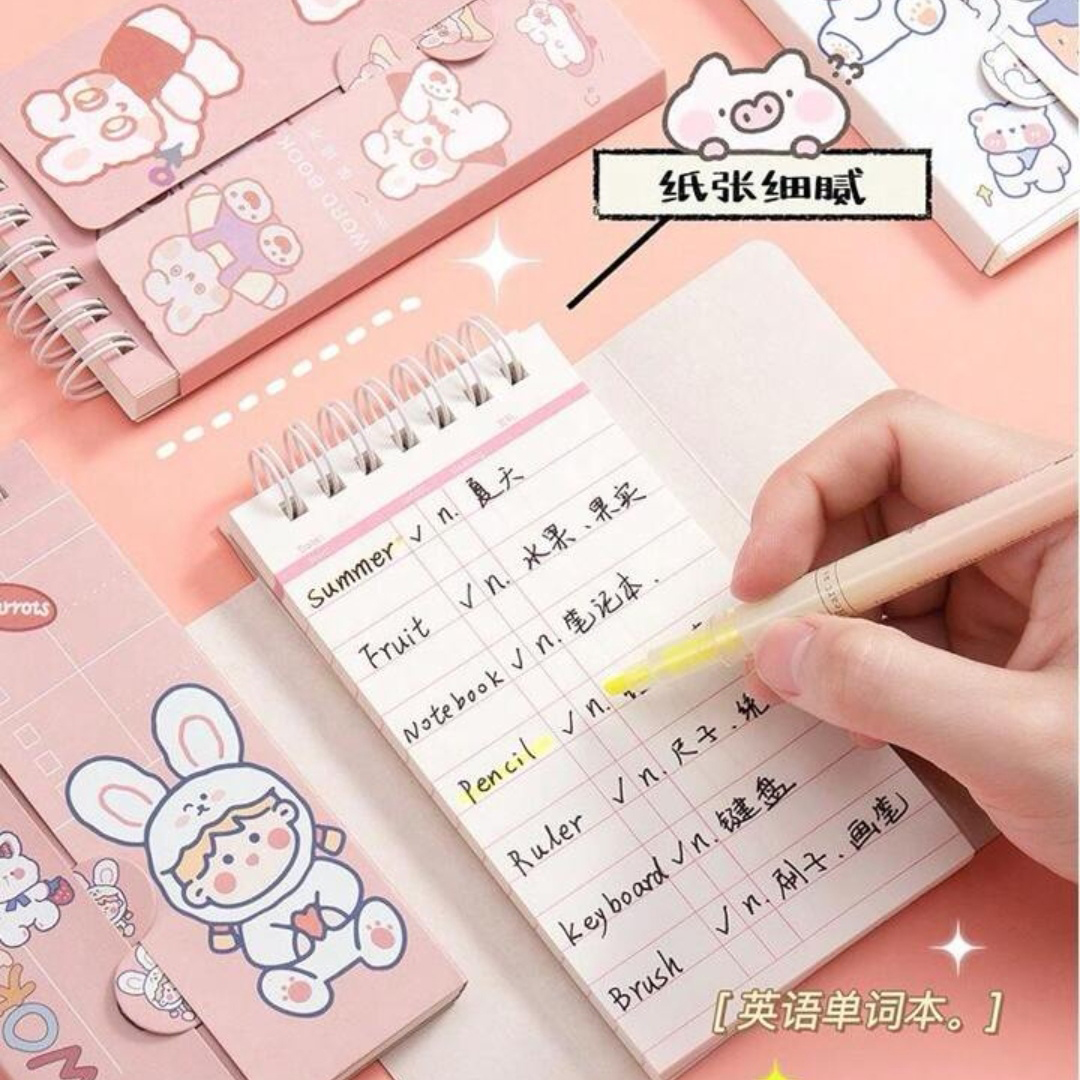 WORD BOOK
??
纸张细腻
Date:
summer ✓ n. 夏天
Fruit ✓ n. 水果、果实
Notebook ✓ n. 笔记本.
Pencil ✓ n.
Ruler ✓ n. 尺子.
keyboard ✓ n. 键盘
Brush ✓ n. 刷子.画笔
[英语单词本。]